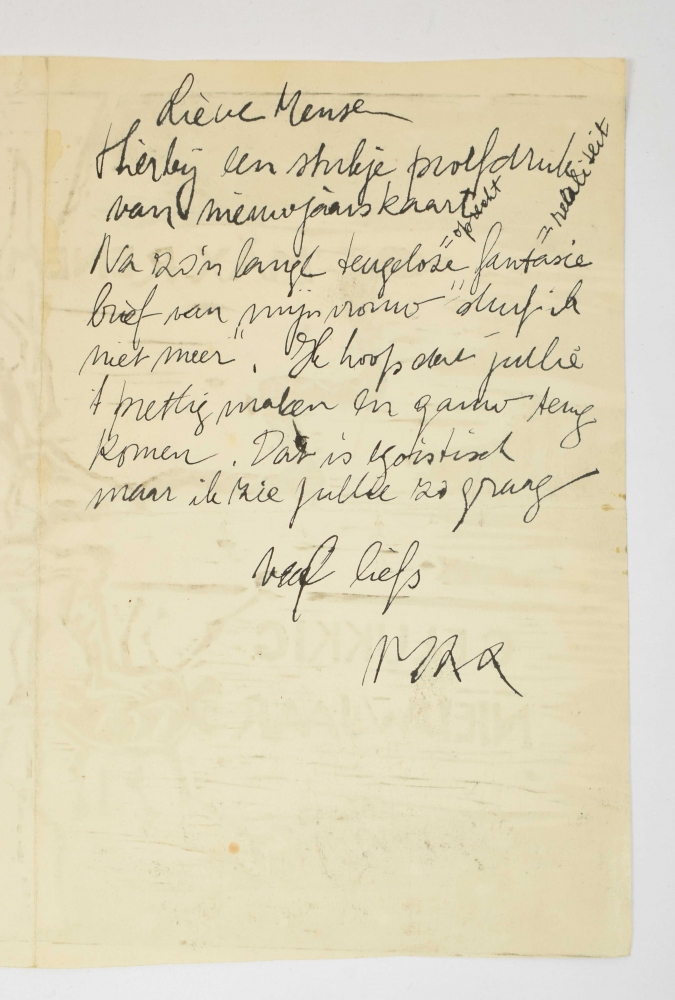 Lieve Mensen
Hierbij een stukje proefdruk
van nieuwjaarskaart
Na zo'n lange teugeloze "oprecht" fantasie = realiteit
brief van mijn vrouw "durf ik
niet meer". Ik hoop dat jullie
't prettig maken en gauw terug
komen. Dat is egoistisch
maar ik zie jullie zo graag
veel liefs
MAX
GELUKKIG
NIEUWJAAR